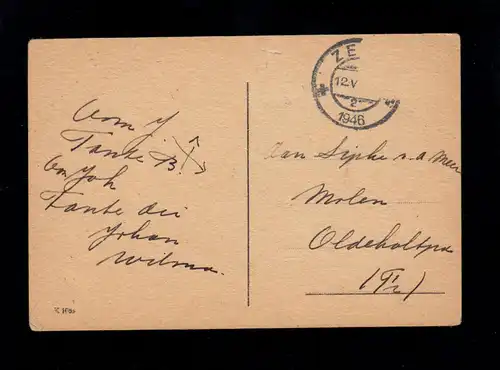 ZE
12.V
2
1946
Oom J
Tante B.
Oom Joh
Tante
Johan
Wilma.
Aan Sipke v.d. Meer
Molen
Oldeholtpa
(Fr)